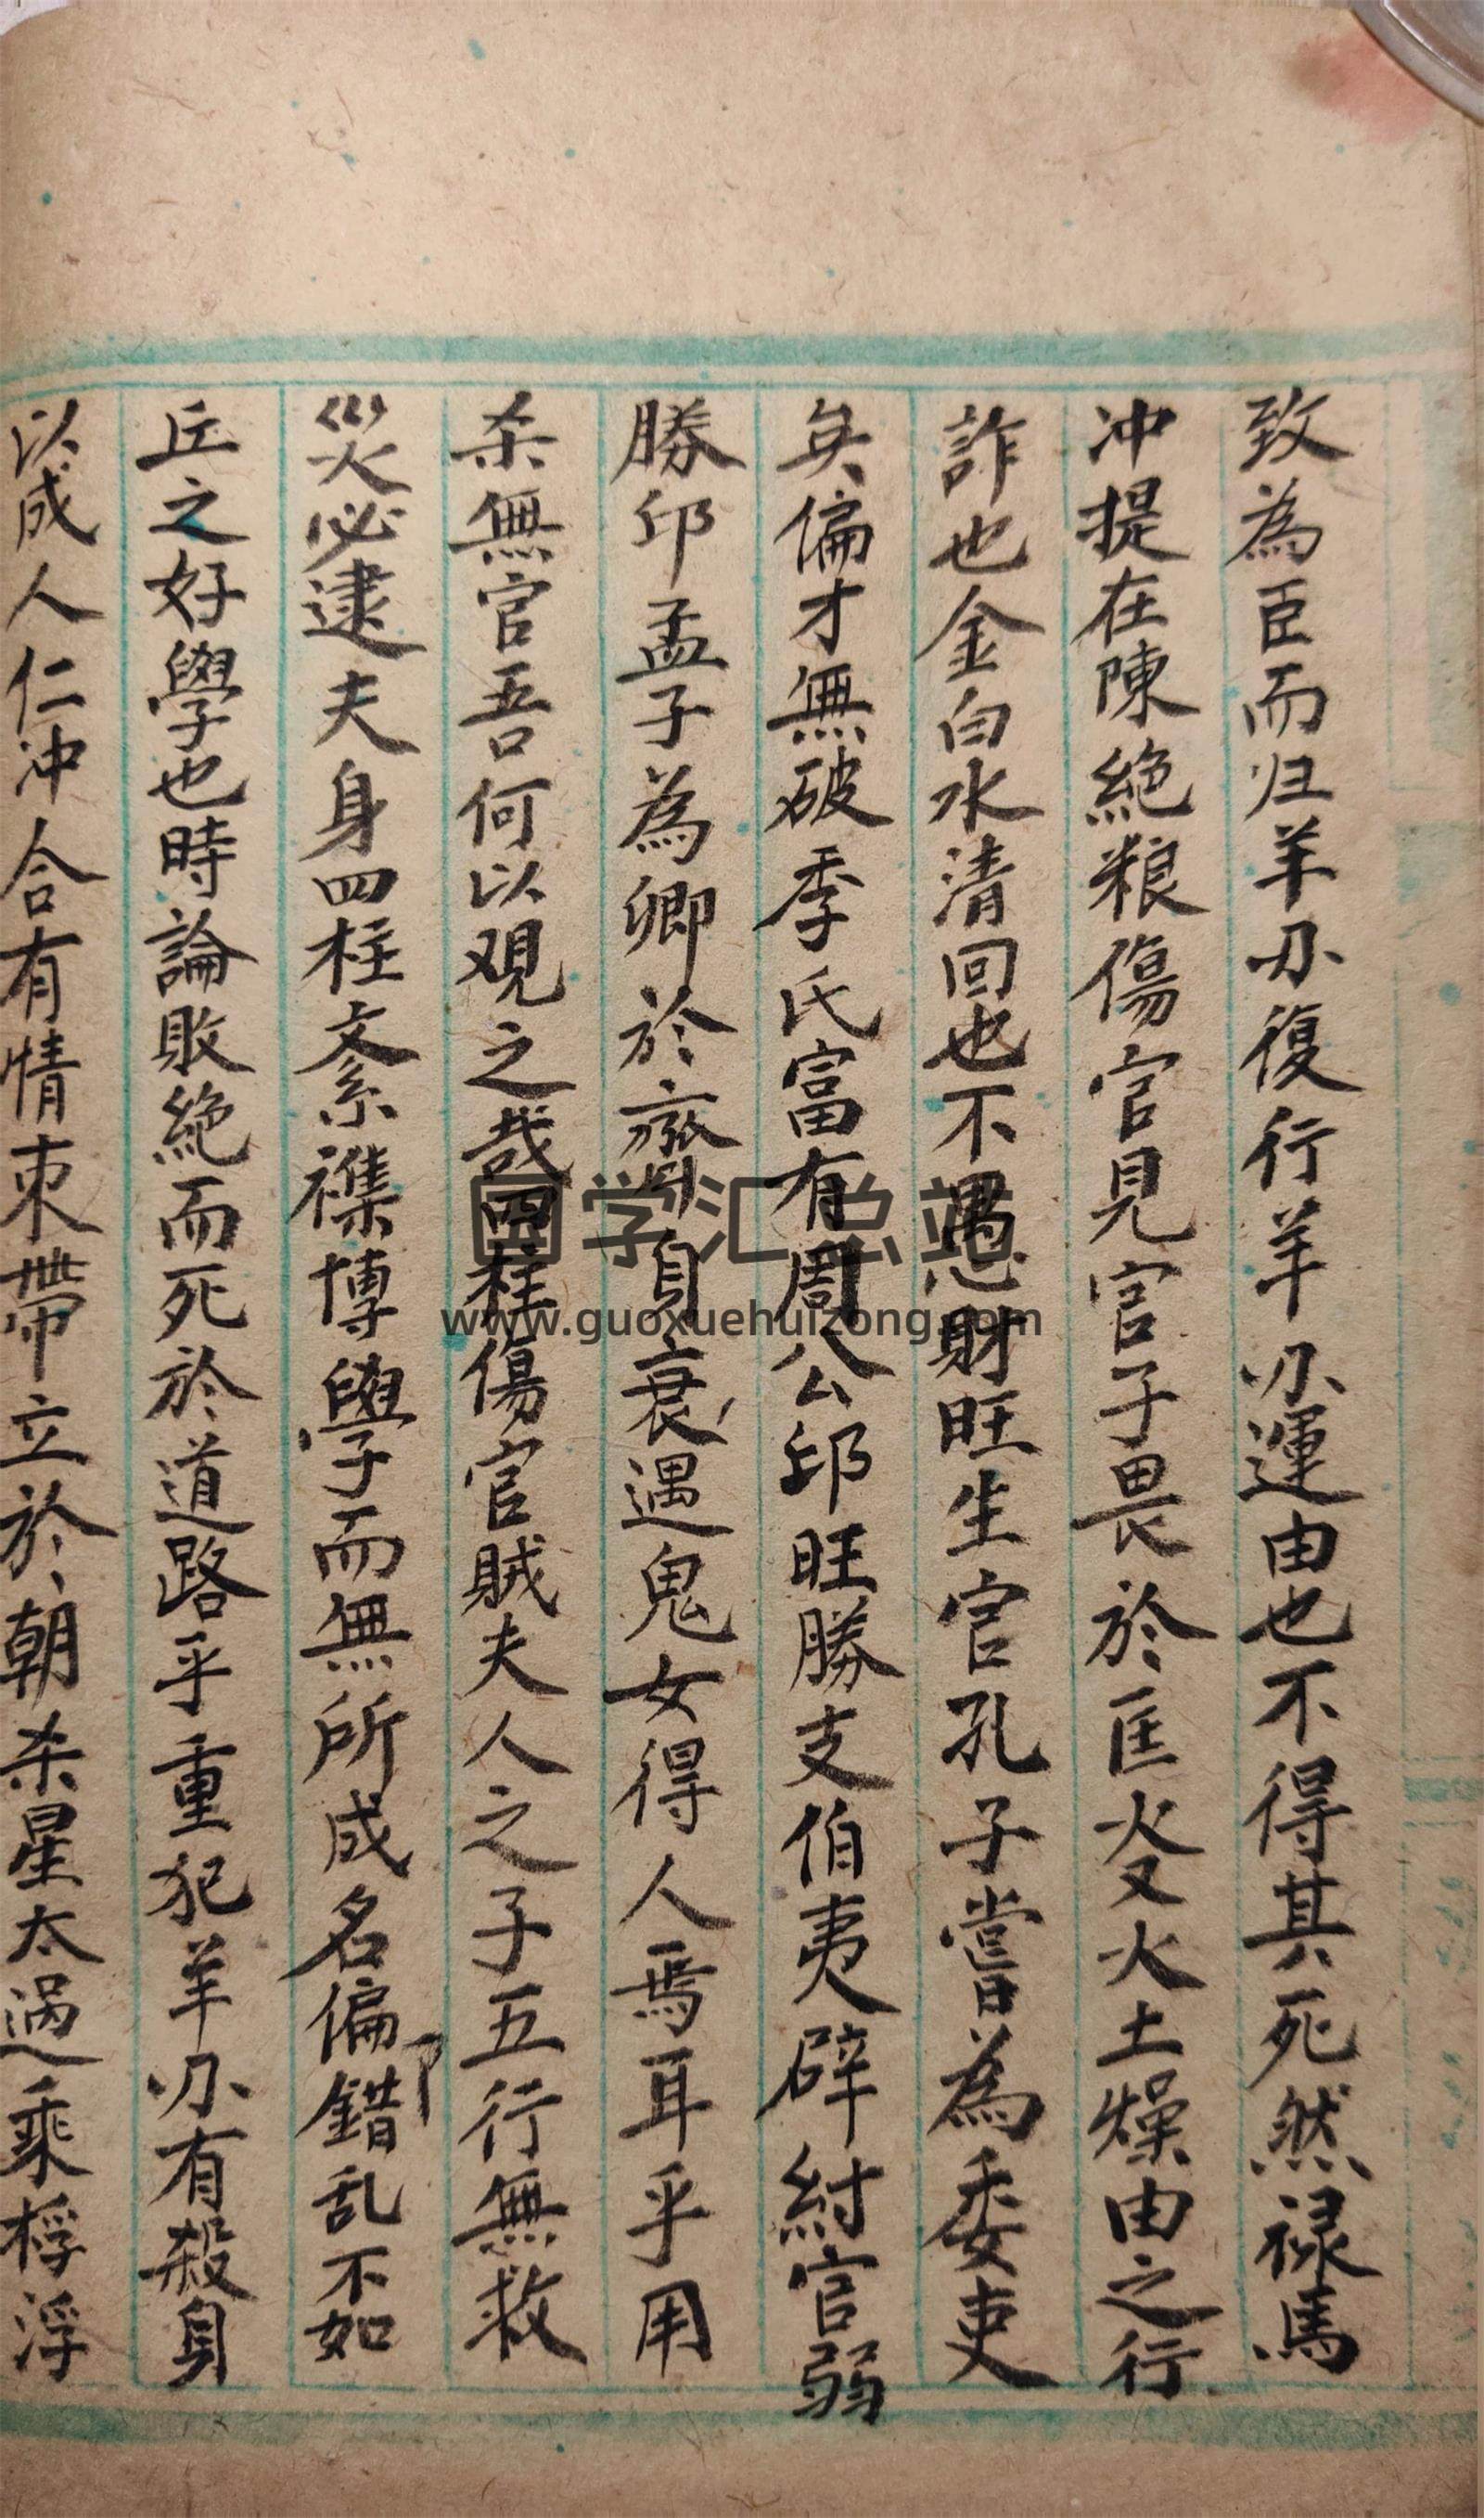 致為臣而归羊刃復行羊刃運由也不得其死然禄馬
冲提在陳絕粮傷官見官子畏於匡火炎火土燥由之行
詐也金白水清回也不愚財旺生官孔子嘗為委吏
矣偏才無破季氏富有周公邱旺勝支伯夷辟紂官弱
勝邱孟子為卿於齊身衰遇鬼女得人焉耳乎用
杀無官吾何以观之哉四柱傷官賊夫人之子五行無救
災必逮夫身四柱紊襍博學而無所成名偏錯乱不如
丘之好學也時論敗絕而死於道路乎重犯羊刃有殺身
以成人仁冲合有情束帶立於朝杀星太过乘桴浮
国学汇总站
www.guoxuehuizong.com